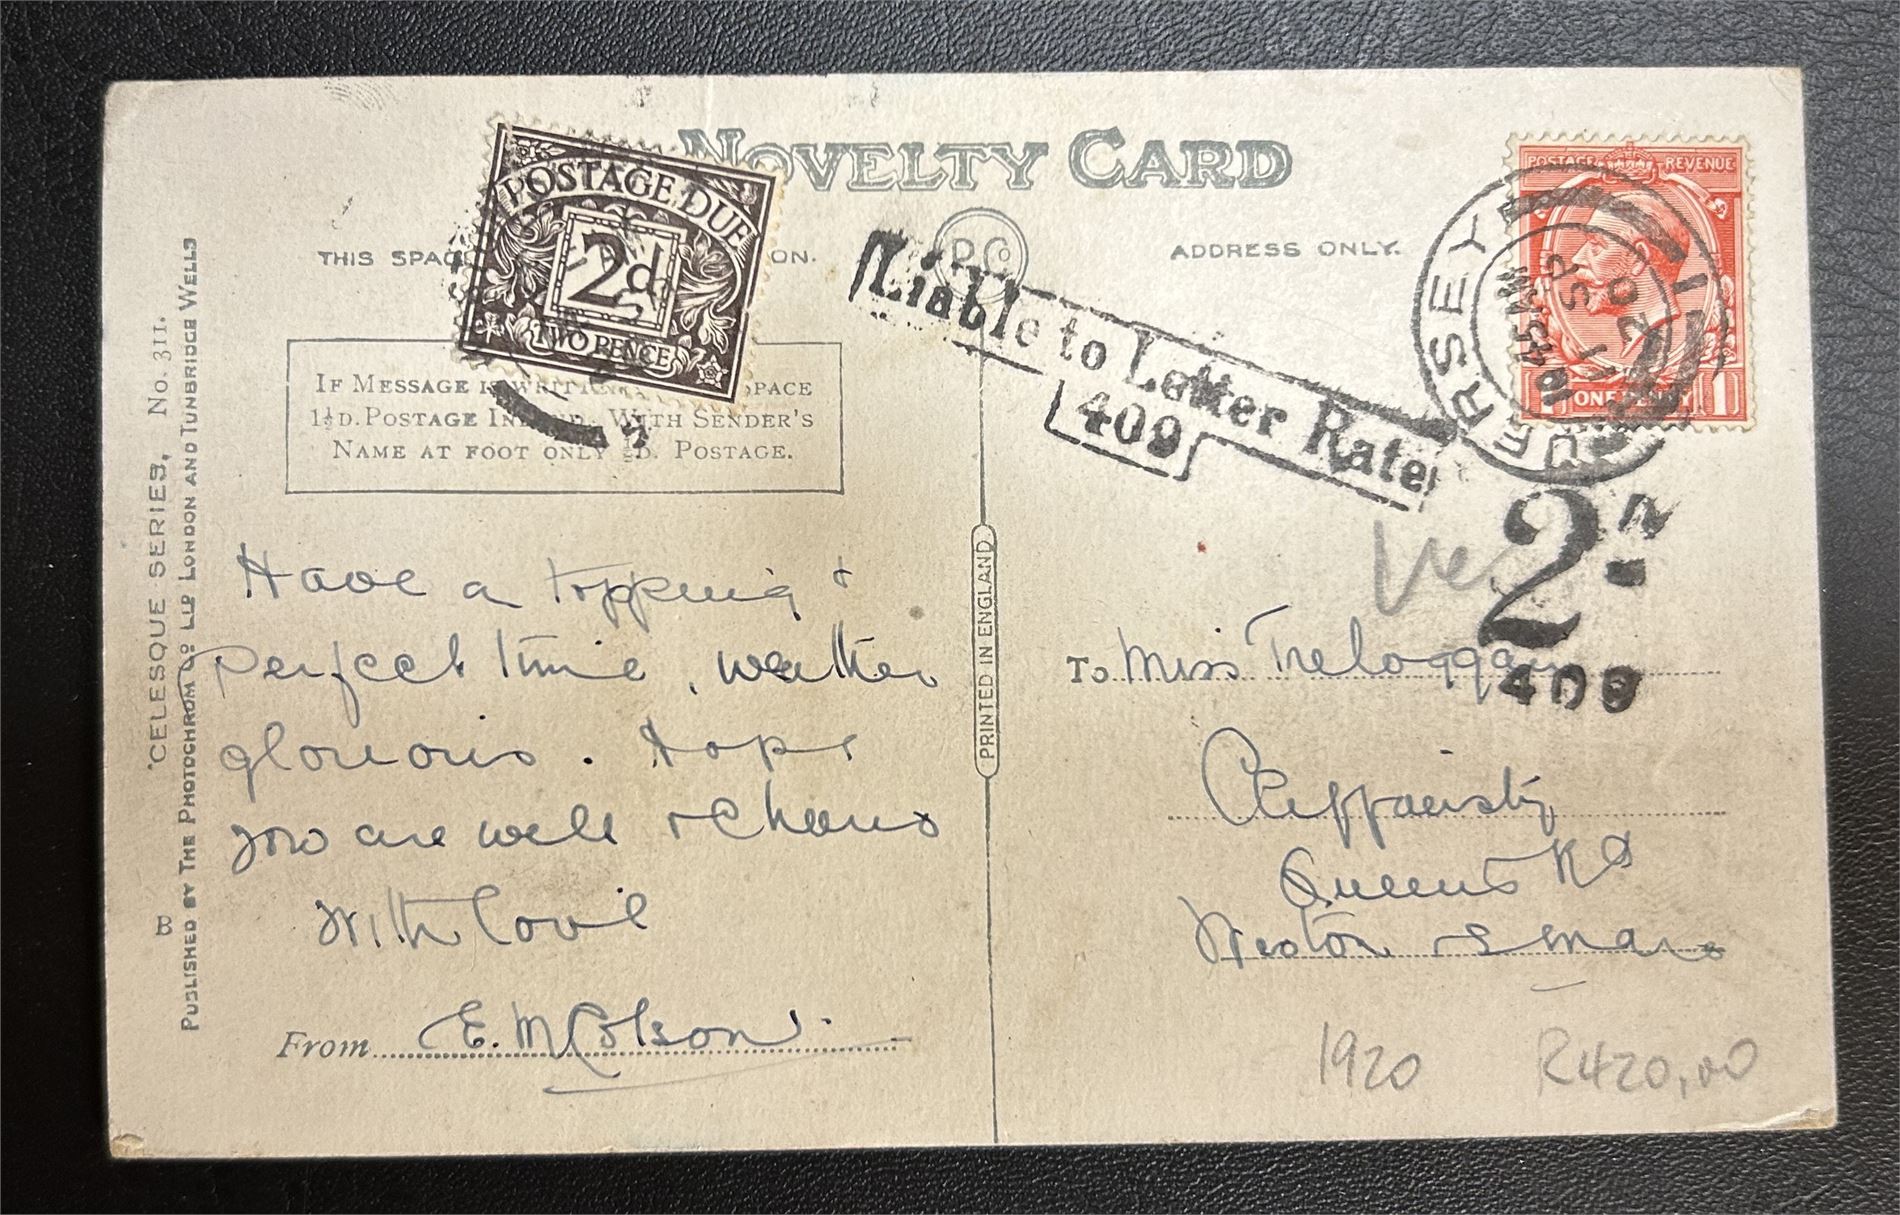 NOVELTY CARD
POSTAGE DUE
2d
TWO PENCE
THIS SPAC ON.
P Co
ADDRESS ONLY.
POSTAGE REVENUE
1 ONE PENNY 1
JERSEY
10 45 PM
1 SP
20
Liable to Letter Rate
409
IF MESSAGE IS WRITTEN SPACE
1½D. POSTAGE WITH SENDER'S
NAME AT FOOT ONLY ½D. POSTAGE.
2
409
Have a topping &
perfect time, weather
glorious. Hope
you are well & cheerio
With love
From E. M. Colson
PRINTED IN ENGLAND
To Miss Treloggan
Queens Rd
Weston S Mare
1920 R420,00
"CELESQUE SERIES, No. 311.
B PUBLISHED BY THE PHOTOCHROM CO LTD LONDON AND TUNBRIDGE WELLS